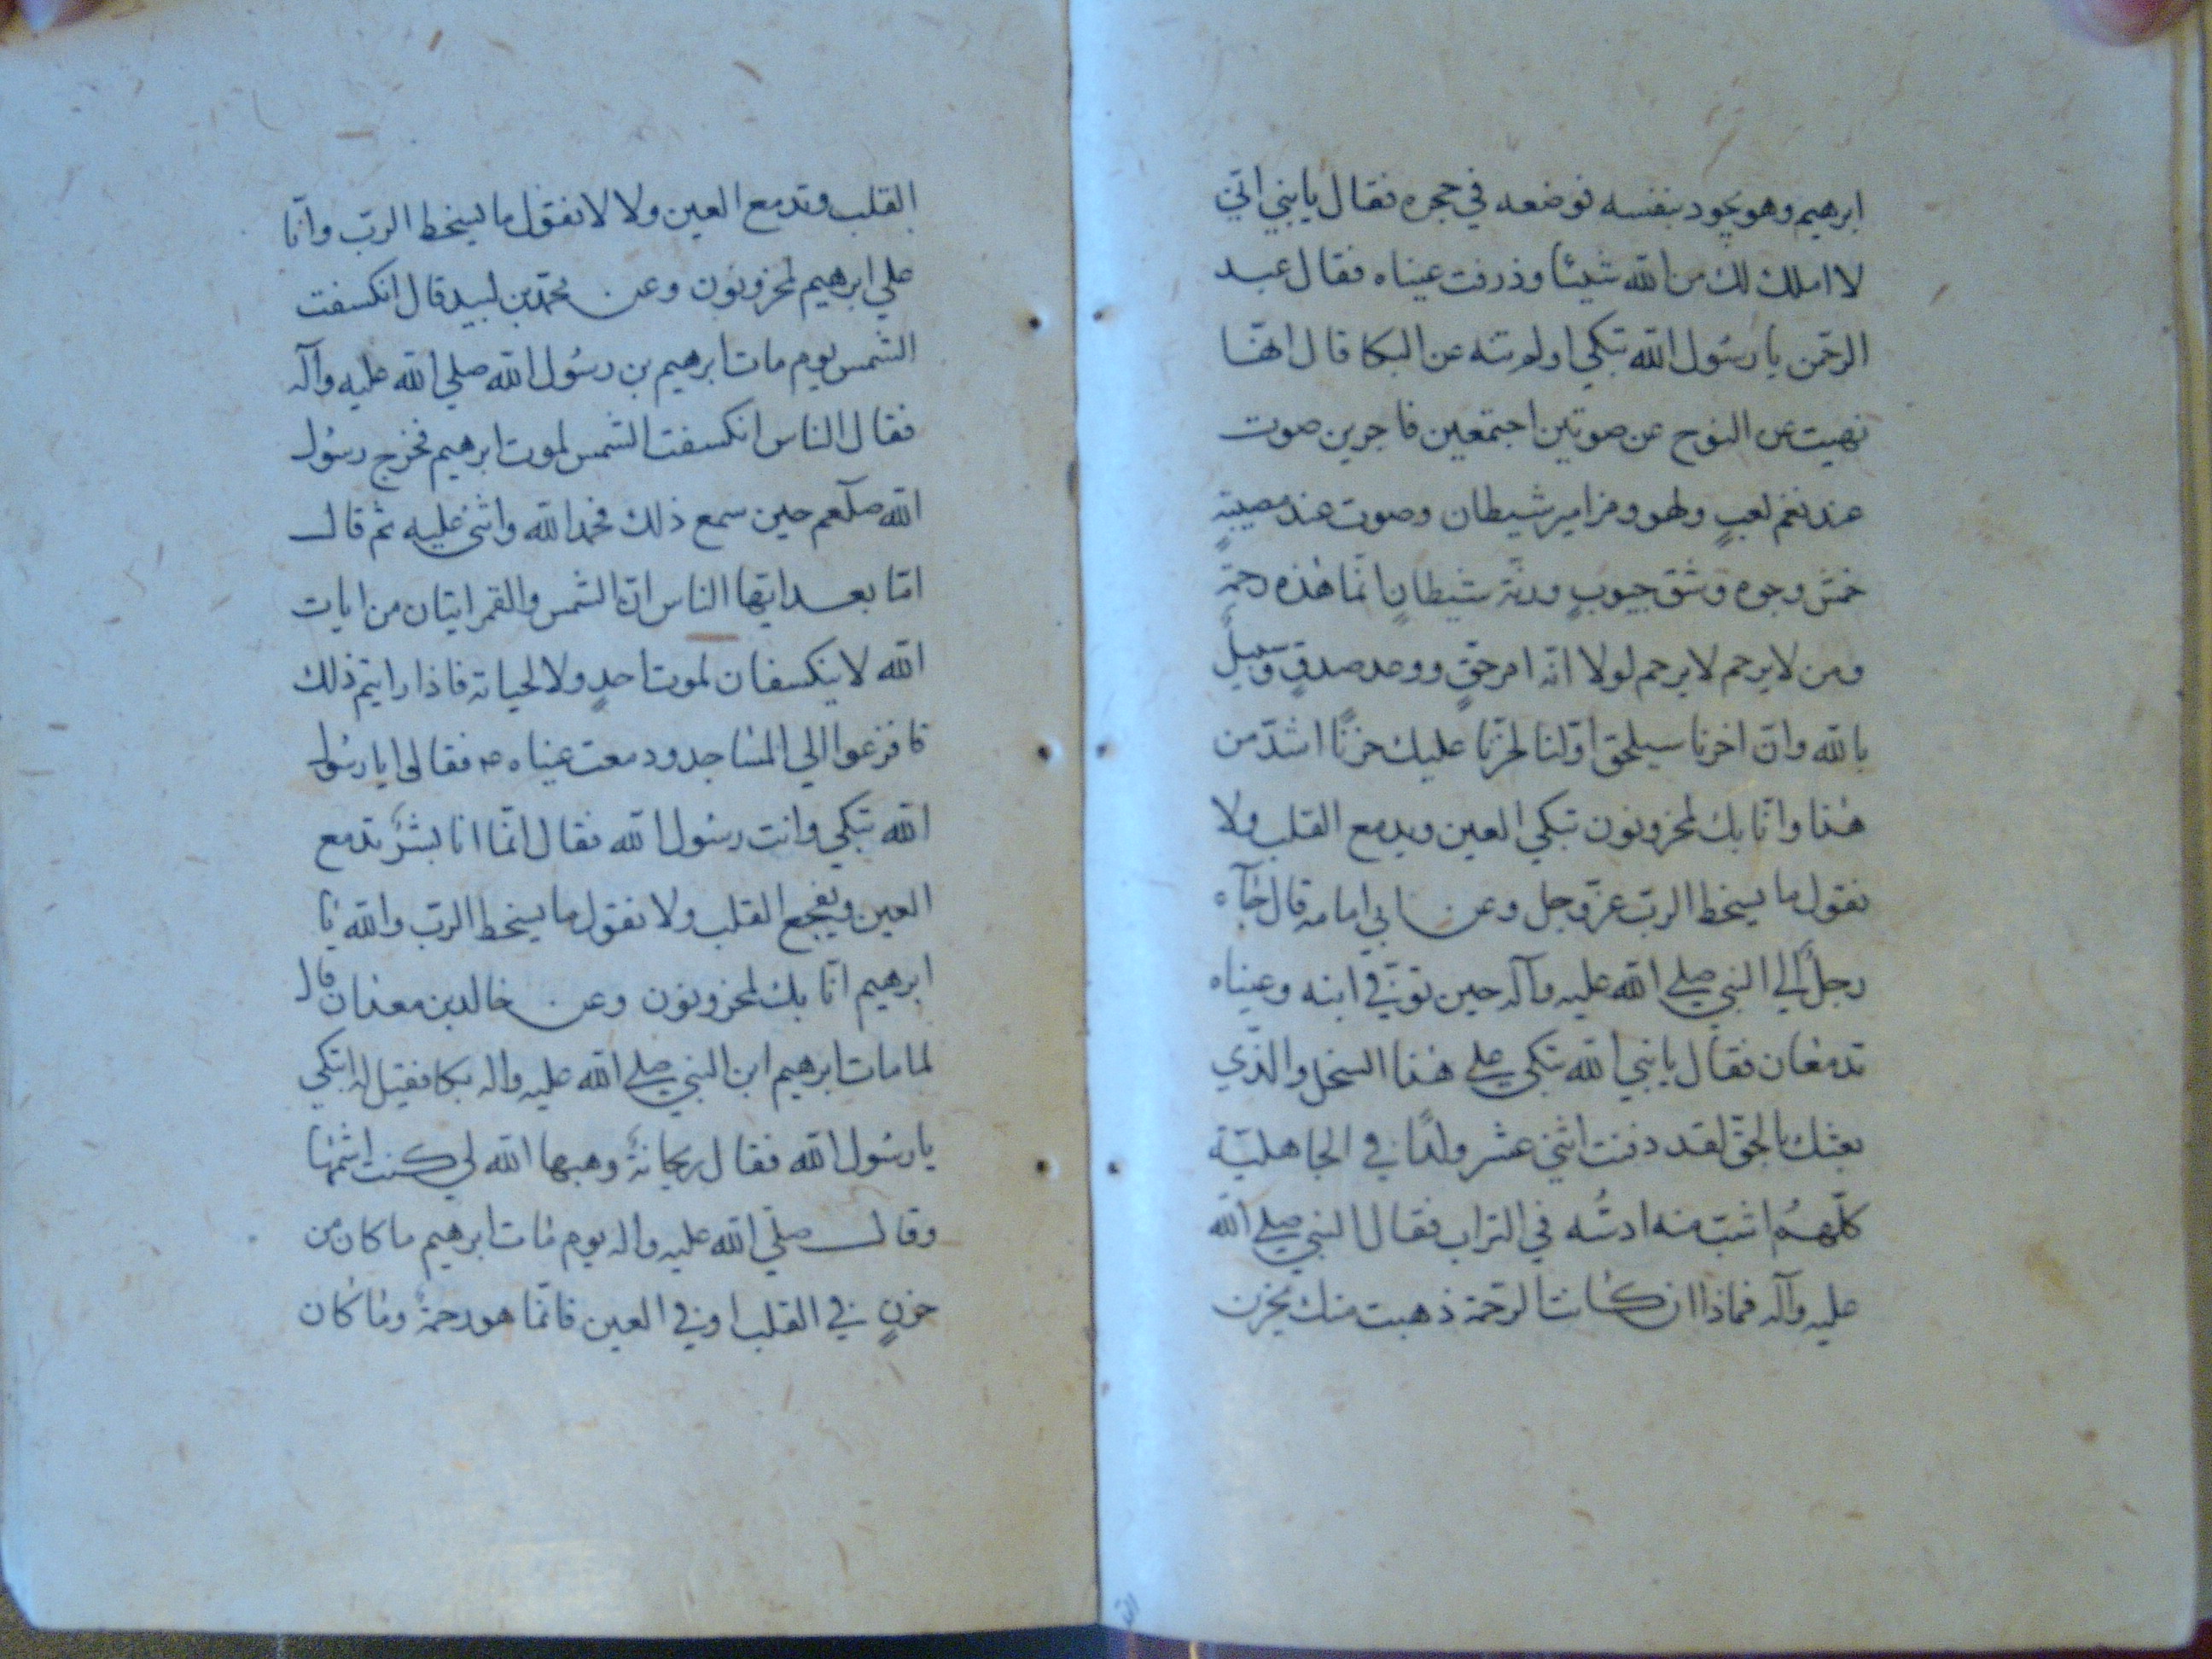 ابرهيم وهو يجود بنفسه فوضعه في حجره فقال يا بني اني
لا املك لك من الله شيئا وذرفت عيناه فقال عبد
الرحمن يا رسول الله تبكي اولم تنه عن البكا قال انما
نهيت عن النوح عن صوتين اجتمعين فاجرين صوت
عند نغم لعبٍ ولهو ومزامير شيطان وصوت عند مصيبةٍ
خمش وجوه وشق جيوبٍ ورنة شيطانٍ انما هذه رحمةٌ
ومن لا يرحم لا يرحم لولا انه امر حقٍ ووعد صدقٍ وسبيل
بالله وان اخرنا سيلحق اولنا لحزنا عليك حزنًا اشد من
هذا وانا بك لمحزونون تبكي العين ويدمع القلب ولا
نقول ما يسخط الرب عز وجل وعن ابي امامه قال جآء
رجلٌ الي النبي صلي الله عليه وآله حين توفي ابنه وعيناه
تدمعان فقال يا نبي الله تبكي علي هذا السخل والذي
بعثك بالحق لقد دفنت اثني عشر ولدًا في الجاهلية
كلهم اشب منه ادسُّه في التراب فقال النبي صلي الله
عليه وآله فماذا ان كانت الرحمة ذهبت منك يحزن
القلب وتدمع العين ولا لا نقول ما يسخط الرب وانا
علي ابرهيم لمحزونون وعن محمد بن لبيد قال انكسفت
الشمس يوم مات ابرهيم بن رسول الله صلي الله عليه وآله
فقال الناس انكسفت الشمس لموت ابرهيم فخرج رسول
الله صلعم حين سمع ذلك فحمد الله واثني عليه ثم قال
اما بعد ايها الناس ان الشمس والقمر ايتان من ايات
الله لا ينكسفان لموت احدٍ ولا لحياته فاذا رايتم ذلك
فافزعوا الي المساجد ودمعت عيناه فقالوا يا رسول
الله تبكي وانت رسول الله فقال انما انا بشرٌ تدمع
العين ويفجع القلب ولا نقول ما يسخط الرب والله يا
ابرهيم انا بك لمحزونون وعن خالد بن معدان قال
لما مات ابرهيم ابن النبي صلي الله عليه واله بكا فقيل له اتبكي
يا رسول الله فقال ريحانةٌ وهبها الله لي كنت اشمها
وقال صلي الله عليه واله يوم مات ابرهيم ما كان من
حزنٍ في القلب او في العين فانما هو رحمةٌ وما كان